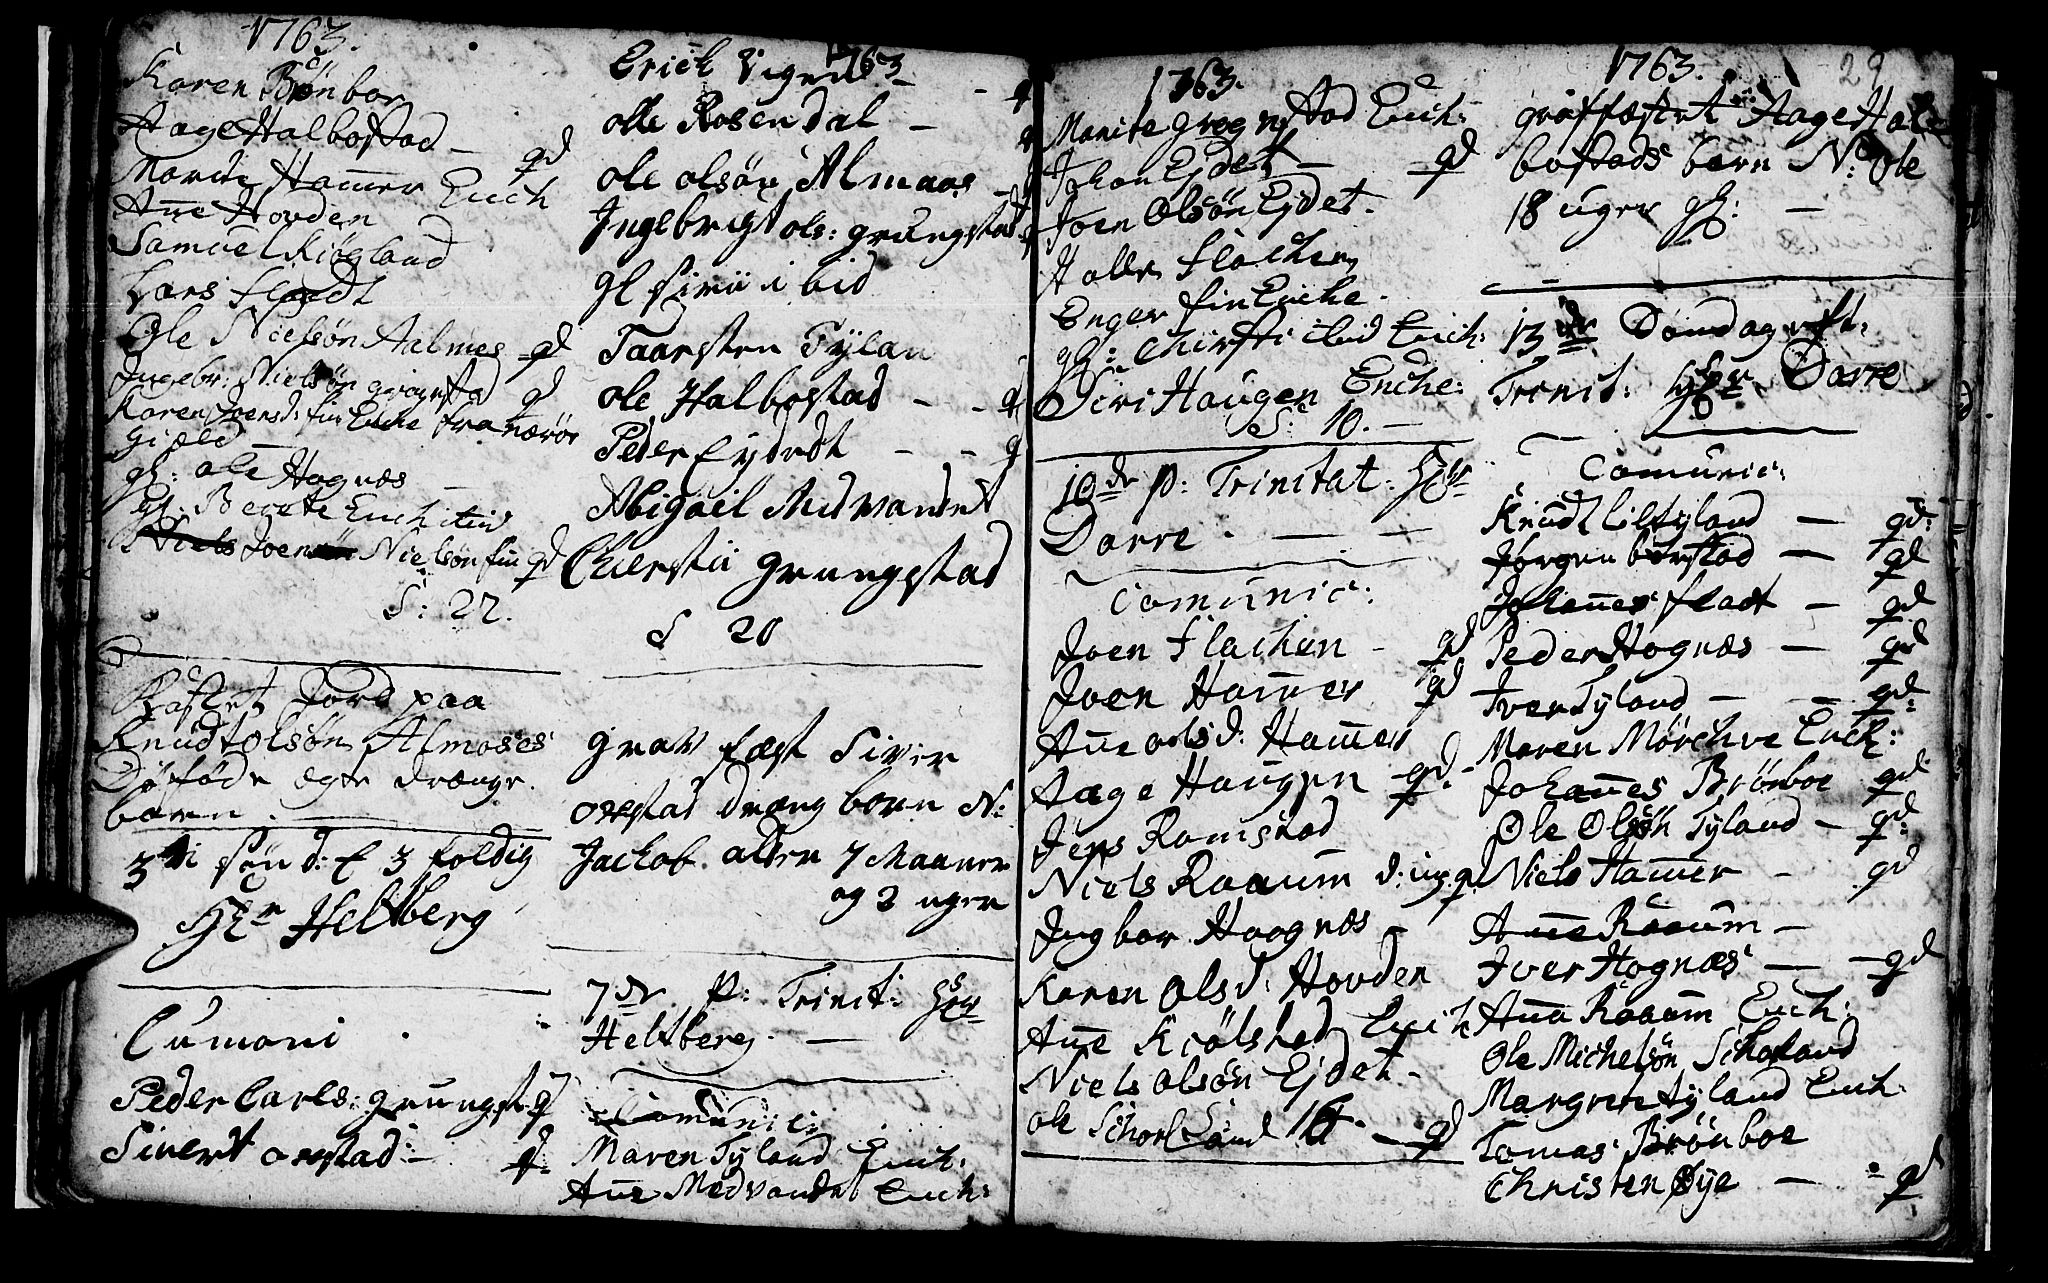 1763.
Karen Brönboe
Aage Halbostad
Marite Hamer Ench qd
Ane Hovden
Samuel Kiögland
Lars Fladt
Ole Nielsön Aalmos qd
Ingebr: Nielsön grogstad qd
Karen Joensd: fin Enche fra nærös
Gield
gl: ole Hognæs
gl: Berete Ench
Niels Joen Nielsön fin qd
S: 22.
Kastet Jord paa
Knudt olsön Almoses
Döföde ægte drænge
barn.
3di sönd: f 3 foldig
Hr Heltberg
Cumoni
Peder Carls: grungst q
Sivert orestad q
1763
Erich q
olle Rosendal q
ole olsön Almaas
Ingebrigt ols: grungstad
gl Siru i bid
Taarsten Tylan
ole Halbostad q
Peder Eydedt q
Abigail Midvandet
Chierstii grungstad
S 20
Grav fæst Siver
orestad dræng born N:
Jackob. alder 7 Maaner
og 2 uger
7de p: Trinit: Hr
Heltberg.
Comunici:
Maren Tyland Ench:
Ane Medvandet Ench:
1763.
Marite grogstad Ench:
Johan Ejdet qd
Joen Olsön Ejdet.
Haller Flachen
Enger fin Enche.
gl: Chirsti Ench:
Siri Haugen Enche:
S: 10.
10de p: Trinitat: Hr
Darre.
Comunic:
Joen Flachen qd
Joen Hamer qd
Ane olsd: Hamer
Aage Haugen qd
Jens Ramstad
Niels Raaum d: ug q
Ingbor Haagnæs
Karen Olsd: Hovden
Ane Kiölstad Ench
Niels Olsön Ejdet
ole Schorland 16. qd
1763.
29
gröffæstet Aage Hal
bostads barn N: Ole
18 uger gl:
13de Söndag eft:
Trinit: Hr Darre
Comunic:
Knudt Liltyland qd:
Jörgen börstad qd
Johannes fladt qd
Peder Hognæs qd
Iver Tyland qd:
Maren Mörchve Ench:
Johannes Brönboe qd
Ole Olsön Tyland qd:
Niels Hamer qd
Anne Raaum
Iver Hognæs qd
Anna Raaum Ench:
Ole Michelsön Schorland
Margrete Tyland Ench:
Tomas Brönboe
Christen Øye qd